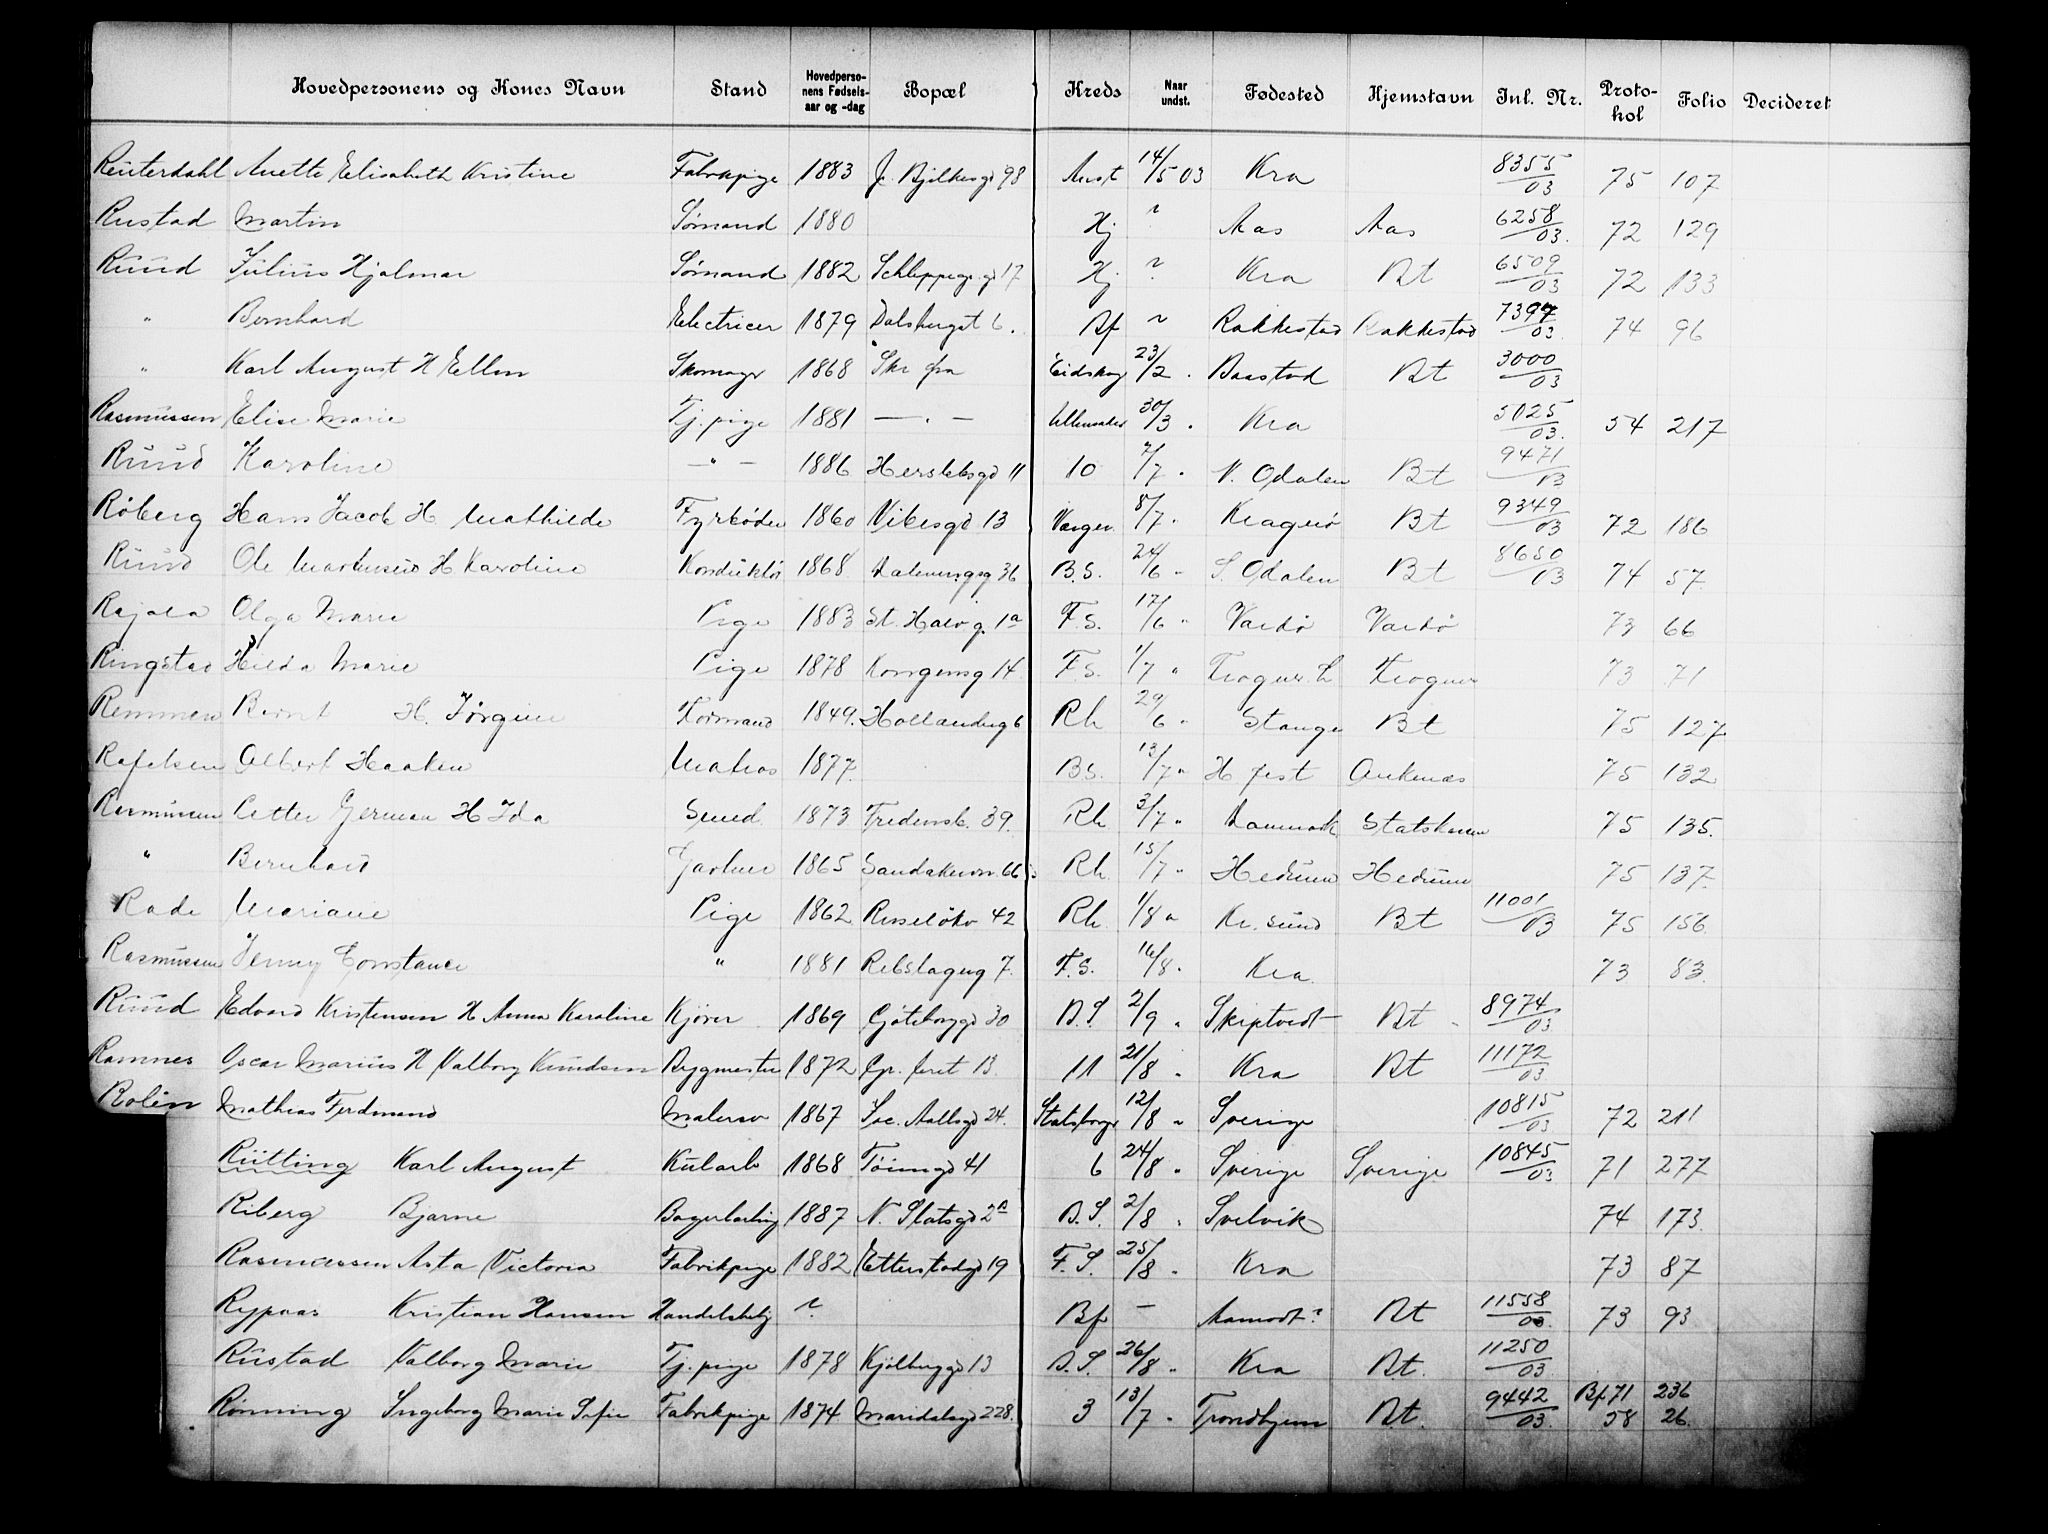 Hovedpersonens og Kones Navn Stand Hovedperso-nens Fødsels-aar og -dag Bopæl Kreds Naar undst. Fødested Hjemstavn Inl. Nr. Proto-kol Folio Decideret
Reuterdahl Anette Elisabeth Kristine Fabrikpige 1883 J. Bjelkesgd 98 Aust 14/5 03 Kra 8355/03 75 107
Rustad Martin Sømand 1880 Hj ? Aas Aas 6258/03. 72 129
Ruud Julius Hjalmar Sømand 1882 Schleppegr.gd 17 Hj ? Kra Bt 6509/03 72 133
" Bernhard Electricer 1879 Dalsbergst 6. Bf ? Rakkestad Rakkestad 7397/03. 74 96
" Karl August H Ellen Skomagr 1868 Skr fra Eidskog 23/2 . Baastad Bt 3000/03
Rasmussen Elise Marie Tj. pige 1881 — " — Ullensaker 30/3 . Kra 5025/03. 54 217
Ruud Karoline — " — 1886 Herslebsgd 11 10 7/7 " N. Odalen Bt 9471/03
Røberg Hans Jacob H. Mathilde Fyrbøder 1860 Vibesgd 13 Vaager 8/7 " Kragerø Bt 9349/03 72 186
Ruud Ole Martinius H Karoline Konduktør 1868 Dalenengg 36 B.S. 24/6 " S. Odalen Bt 8650/03 74 57.
Rajala Olga Marie Pige 1883 St. Halv g. 1a F.S. 17/6 " Vardø Vardø 73 66
Ringstad Hilda Marie Pige 1878 Kongensg 14 F.S. 1/7 " Trogner. L Trogner 73 71
Remmen Bernt H. Jørgine Formand 1849. Hollenderg 6 Rh 29/6 " Stange Bt 75 127
Rafelsen Albert Haaken Matros 1877. B.S. 13/7 " H. fest Ankenæs 75 132
Rasmussen Petter German H Ida Smed 1873 Fredensb. 39. Rh 3/7 " Danmark Statshavn 75 135.
" Bernhard Gartner 1865 Sandakervn. 66 Rh. 15/7 " Hedrum Hedrum 75 137.
Rode Mariane Pige 1862 Russeløkv 42 Rh. 1/8 " Kr. sund Bt 11001/03 75 156.
Rasmussen Jenny Constance " 1881 Rebslagerg 7. F.S. 16/8 . Kra. 73 83.
Ruud Edvard Kristensen H Anna Karoline Kjører 1869 Gøteborggd 30 B.S 2/9 " Skiptvedt Bt 8974/03
Ramnes Oscar Marius H Valborg Knudsen Bygmester 1872 Gr. feret 13. 11 21/8 " Kra Bt 11172/03
Rolin Mathias Ferdinand Malersv 1867 Soc. Aallsgd 24. Statsborgr 12/8 " Sverige 10815/03 72 211
Rütting Karl August Kularb 1868 Tøiengd 41 6 24/8 " Sverige Sverige 10845/03 71 277
Riberg Bjarne Bagerlærling 1887 N. Slotsgd 2a B.S. 2/8 " Svelvik 74 173.
Rasmussen Asta Victoria Fabrikpige 1882 Etterstadgd 19 F.S. 25/8 " Kra 73 87
Rypaas Kristian Hansen Handelsbetj ? Bf — Aamodt? Bt 11558/03. 73 93.
Rustad Valborg Marie Tj. pige 1878 Kjølberggd 13 B.S. 26/8 " Kra Bt. 11250/03.
Rønning Ingeborg Marie Sofie Fabrikpige 1874 Maridalsgd 228. 3 13/7 " Trondhjem Bt. 9442/03. Bf.71 236
58 26.